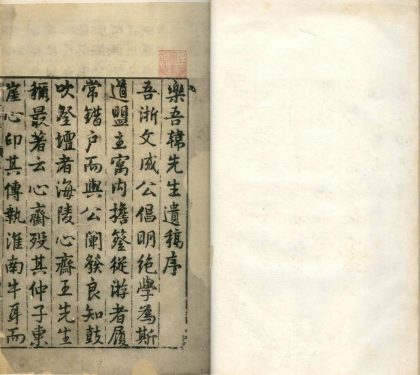 樂吾韓先生遺稿序
吾浙文成公倡明絶學為斯
道盟主寓内擔簦從游者屨
常錯户而與公闡發良知鼓
吹登壇者海陵心齋王先生
稱最著云心齋殁其仲子東
崖心印其傳執淮南牛耳而